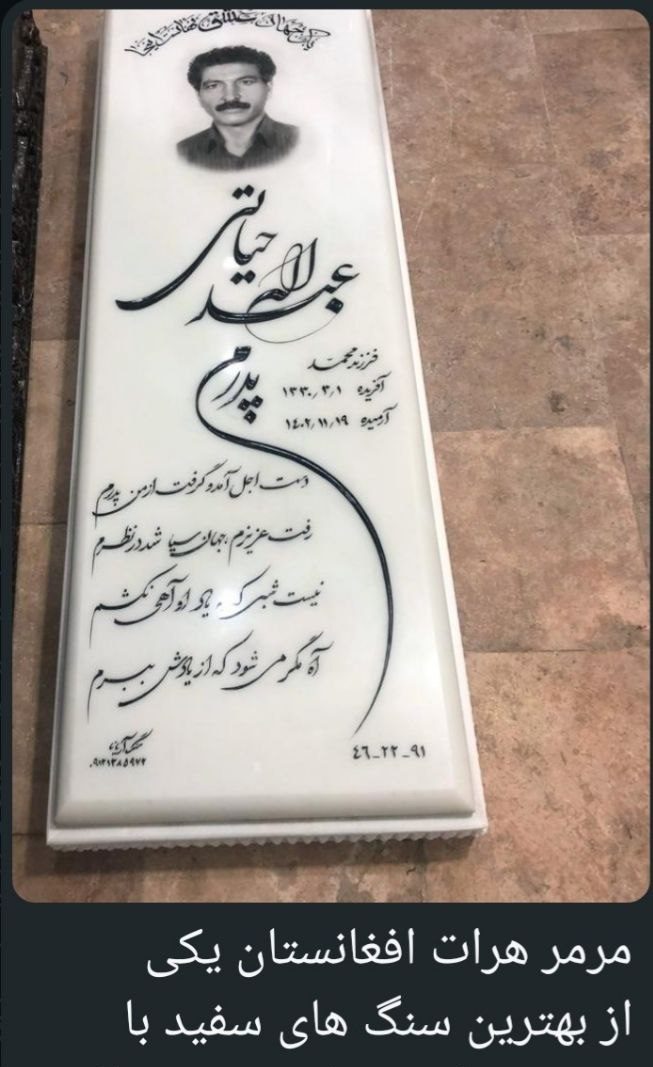 حیاتی
عبدالله
فرزند محمد
آفریده ۱۳۳۰٫۳٫۱
آرمیده ۱۴۰۲٫۱۱٫۱۹
پدرم
دست اجل آمد و گرفت از من پدرم
رفت عزیزم جهان سیا شد در نظرم
نیست شبی که به یاد او آهی نکشم
آه مگر می شود که از یادش ببرم
۴٦-۲۲-۹۱
۰۹۱۲۱۲۸۵۹۷۲
مرمر هرات افغانستان یکی
از بهترین سنگ های سفید با